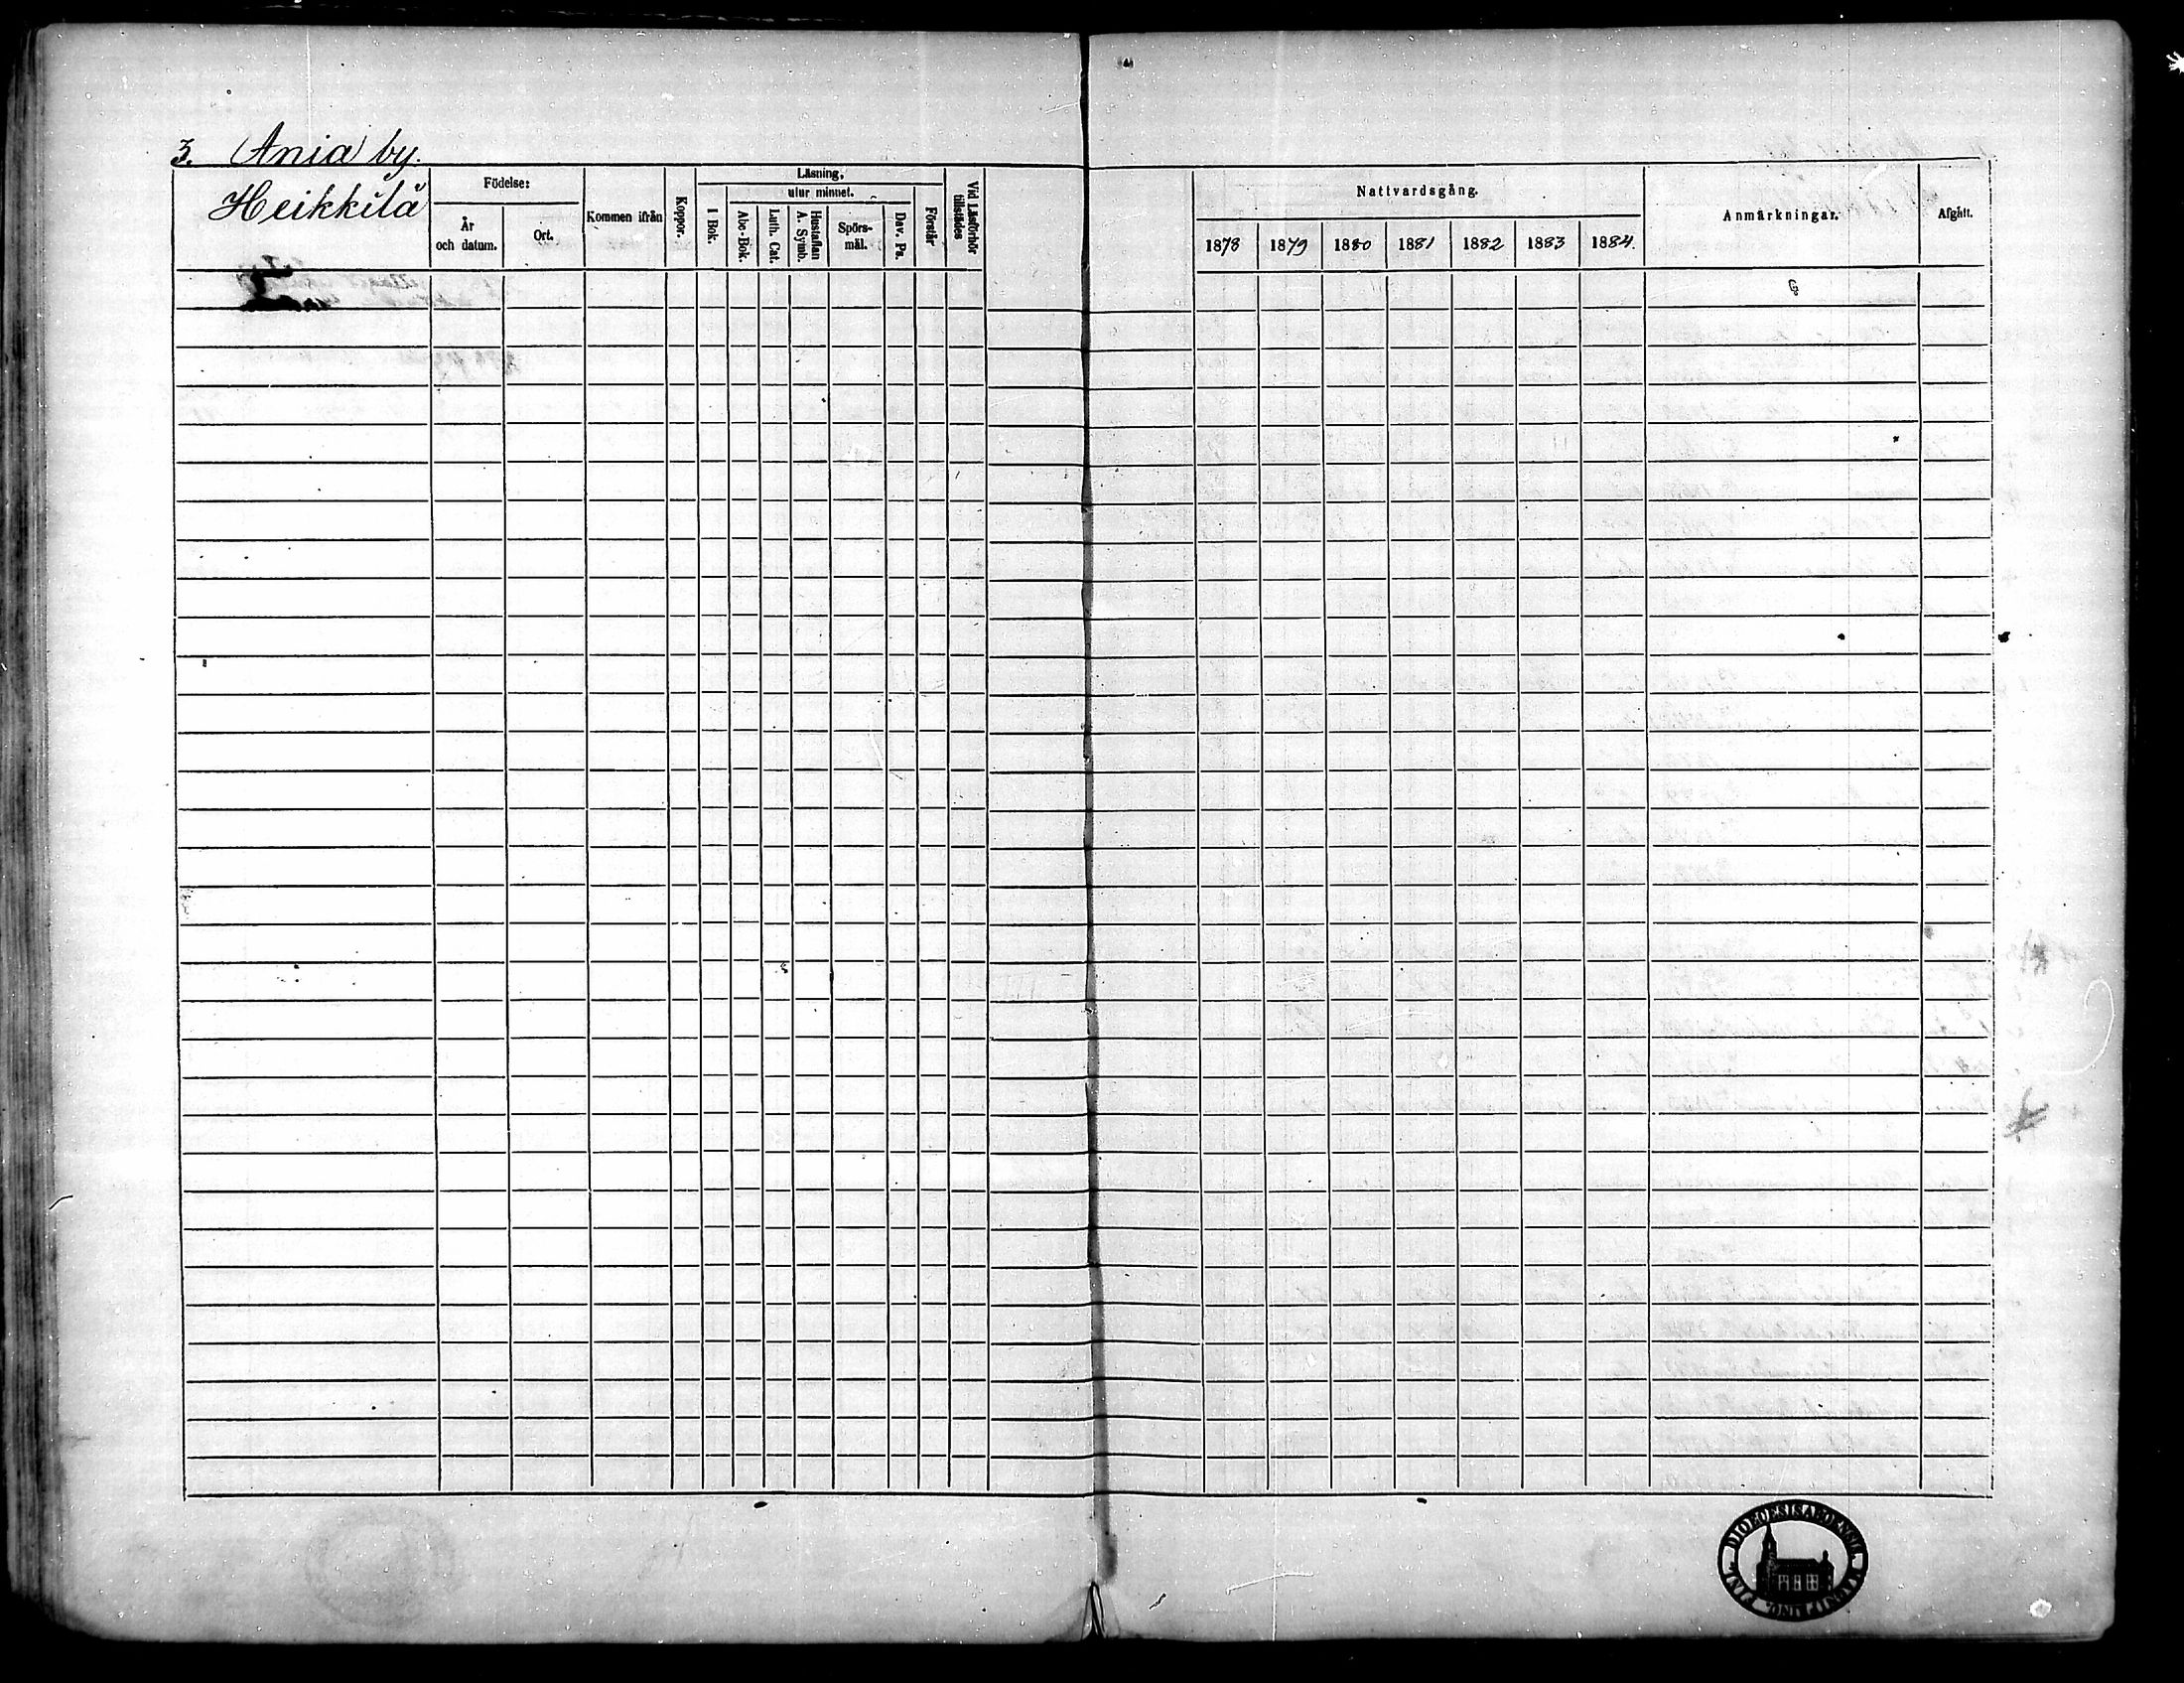 3. Ania by.
Heikkilä
Födelse:
År och datum.
Ort.
Kommen ifrån
Koppor.
Läsning,
I Bok.
utur minnet.
Abc-Bok.
Luth. Cat.
Hustaflan A. Symb.
Spörs-mål.
Dav. Ps.
Förstår
Vid Läsförhör tillstädes
Nattvardsgång.
1878 1879 1880 1881 1882 1883 1884.
Anmärkningar.
Afgått.